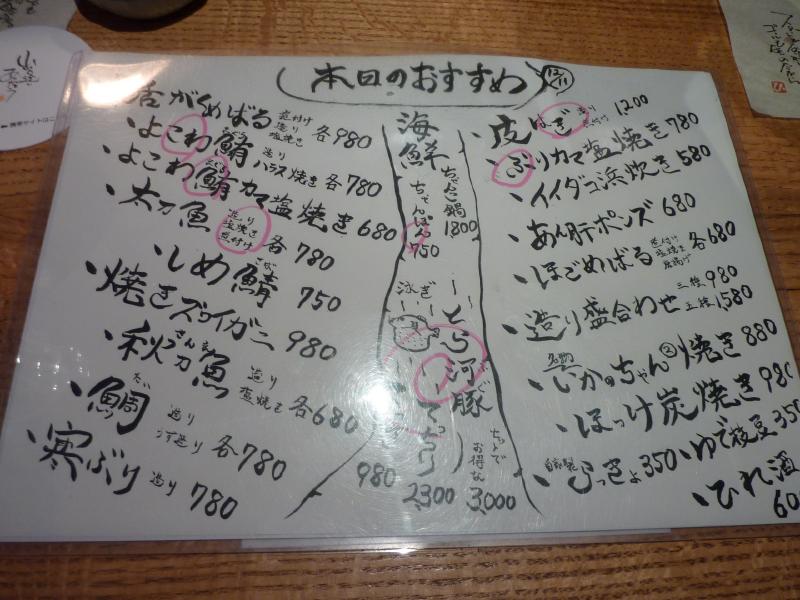 本日のおすすめ 12/11
・活がくめばる 煮付け 造り 塩焼き 各980
・よこわ鮪 造り ハラス焼き 各780
・よこわ鮪カマ塩焼き 680
・太刀魚 造り 塩焼き 煮付け 各780
・しめ鯖 750
・焼きズワイガニ 980
・秋刀魚 さんま 造り 塩焼き 各680
・鯛 たい 造り 各780
・寒ぶり 造り 780
海鮮
ちゃんこ鍋 1800
ちゃんぽん 750
とら河豚
てっちり
980
2,300
お得な
3,000
・皮はぎ 造り 1,200
・ぶりカマ塩焼き 780
・イイダコ浜炊き 580
・あん肝ポンズ 680
・ほごめばる 煮付け 塩焼き 唐揚げ 各680
・造り盛合わせ 三種 980 五種 1,580
・名物 いかのちゃんちゃん焼き 880
・ほっけ炭焼き 980
自家製 らっきょ 350
・ゆで枝豆 350
・ひれ酒 60